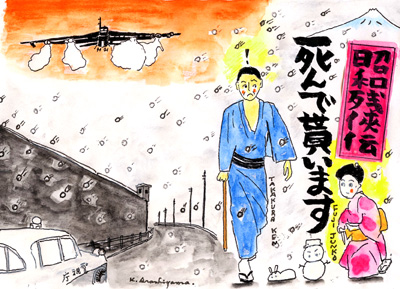 昭和残侠伝
死んで貰います
!
TAKAKURA KEN
FUJI JUNKO
K. Arashiyama.